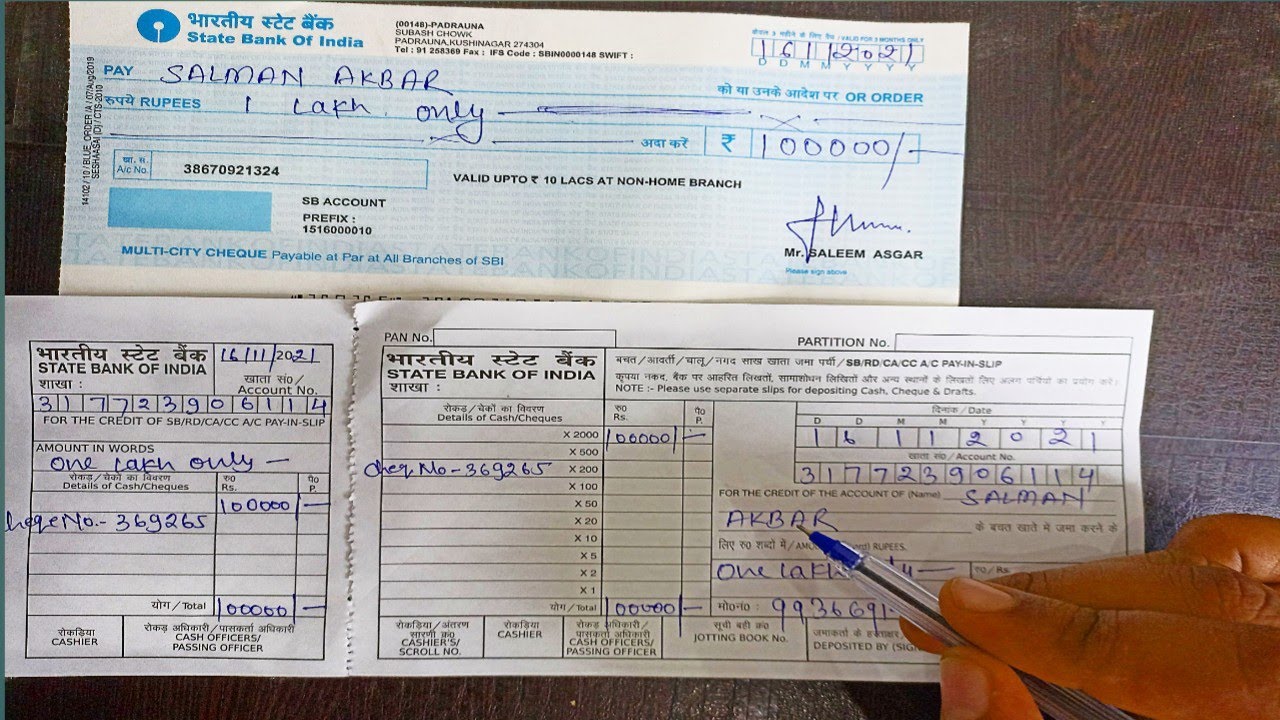 भारतीय स्टेट बैंक
State Bank Of India
(00148)-PADRAUNA
SUBASH CHOWK
PADRAUNA,KUSHINAGAR 274304
Tel : 91 258369 Fax : IFS Code : SBIN0000148 SWIFT :
केवल 3 महीने के लिए वैध / VALID FOR 3 MONTHS ONLY
16112021
D D M M Y Y Y Y
PAY SALMAN AKBAR
को या उनके आदेश पर OR ORDER
रुपये RUPEES 1 Lakh only
अदा करें ₹ 100000/-
खा. स.
A/c No. 38670921324
VALID UPTO ₹ 10 LACS AT NON-HOME BRANCH
SB ACCOUNT
PREFIX :
1516000010
Mr. SALEEM ASGAR
Please sign above
MULTI-CITY CHEQUE Payable at Par at All Branches of SBI
भारतीय स्टेट बैंक 16/11/2021
STATE BANK OF INDIA
शाखा : खाता सं०/
Account No.
317723906114
FOR THE CREDIT OF SB/RD/CA/CC A/C PAY-IN-SLIP
AMOUNT IN WORDS
One lakh only
रोकड़/चेकों का विवरण रु० पै०
Details of Cash/Cheques Rs. P.
100000/-
No.- 369265
योग/Total 100000/-
रोकड़िया
CASHIER
रोकड़ अधिकारी/पासकर्ता अधिकारी
CASH OFFICERS/
PASSING OFFICER
PAN No.
PARTITION No.
भारतीय स्टेट बैंक
STATE BANK OF INDIA
शाखा :
बचत/आवर्ती/चालू/नगद साख खाता जमा पर्ची/SB/RD/CA/CC A/C PAY-IN-SLIP
NOTE :- Please use separate slips for depositing Cash, Cheque & Drafts.
रोकड़/चेकों का विवरण रु० पै०
Details of Cash/Cheques Rs. P.
X 2000 100000/-
X 500
No-369265 X 200
X 100
X 50
X 20
X 10
X 5
X 2
X 1
योग/Total 100000/-
दिनांक/Date
D D M M Y Y Y Y
16112021
खाता सं०/Account No.
317723906114
FOR THE CREDIT OF THE ACCOUNT OF (Name) SALMAN
AKBAR के बचत खाते में जमा करने के
लिए रु० शब्दों में/ RUPEES.
One lakh रु०/Rs.
मो०नं० : 993669
रोकड़िया/अंतरण
सारणी क्र०
CASHIER'S/
SCROLL NO.
रोकड़िया
CASHIER
रोकड़ अधिकारी/
पासकर्ता अधिकारी
CASH OFFICERS/
PASSING OFFICER
सूची बही क्र०
JOTTING BOOK No.
जमाकर्ता के हस्ताक्षर
DEPOSITED BY